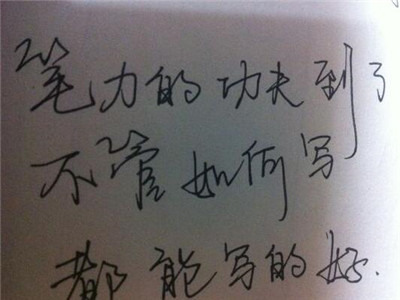 笔力的功夫到了
不管如何写
都能写的好.